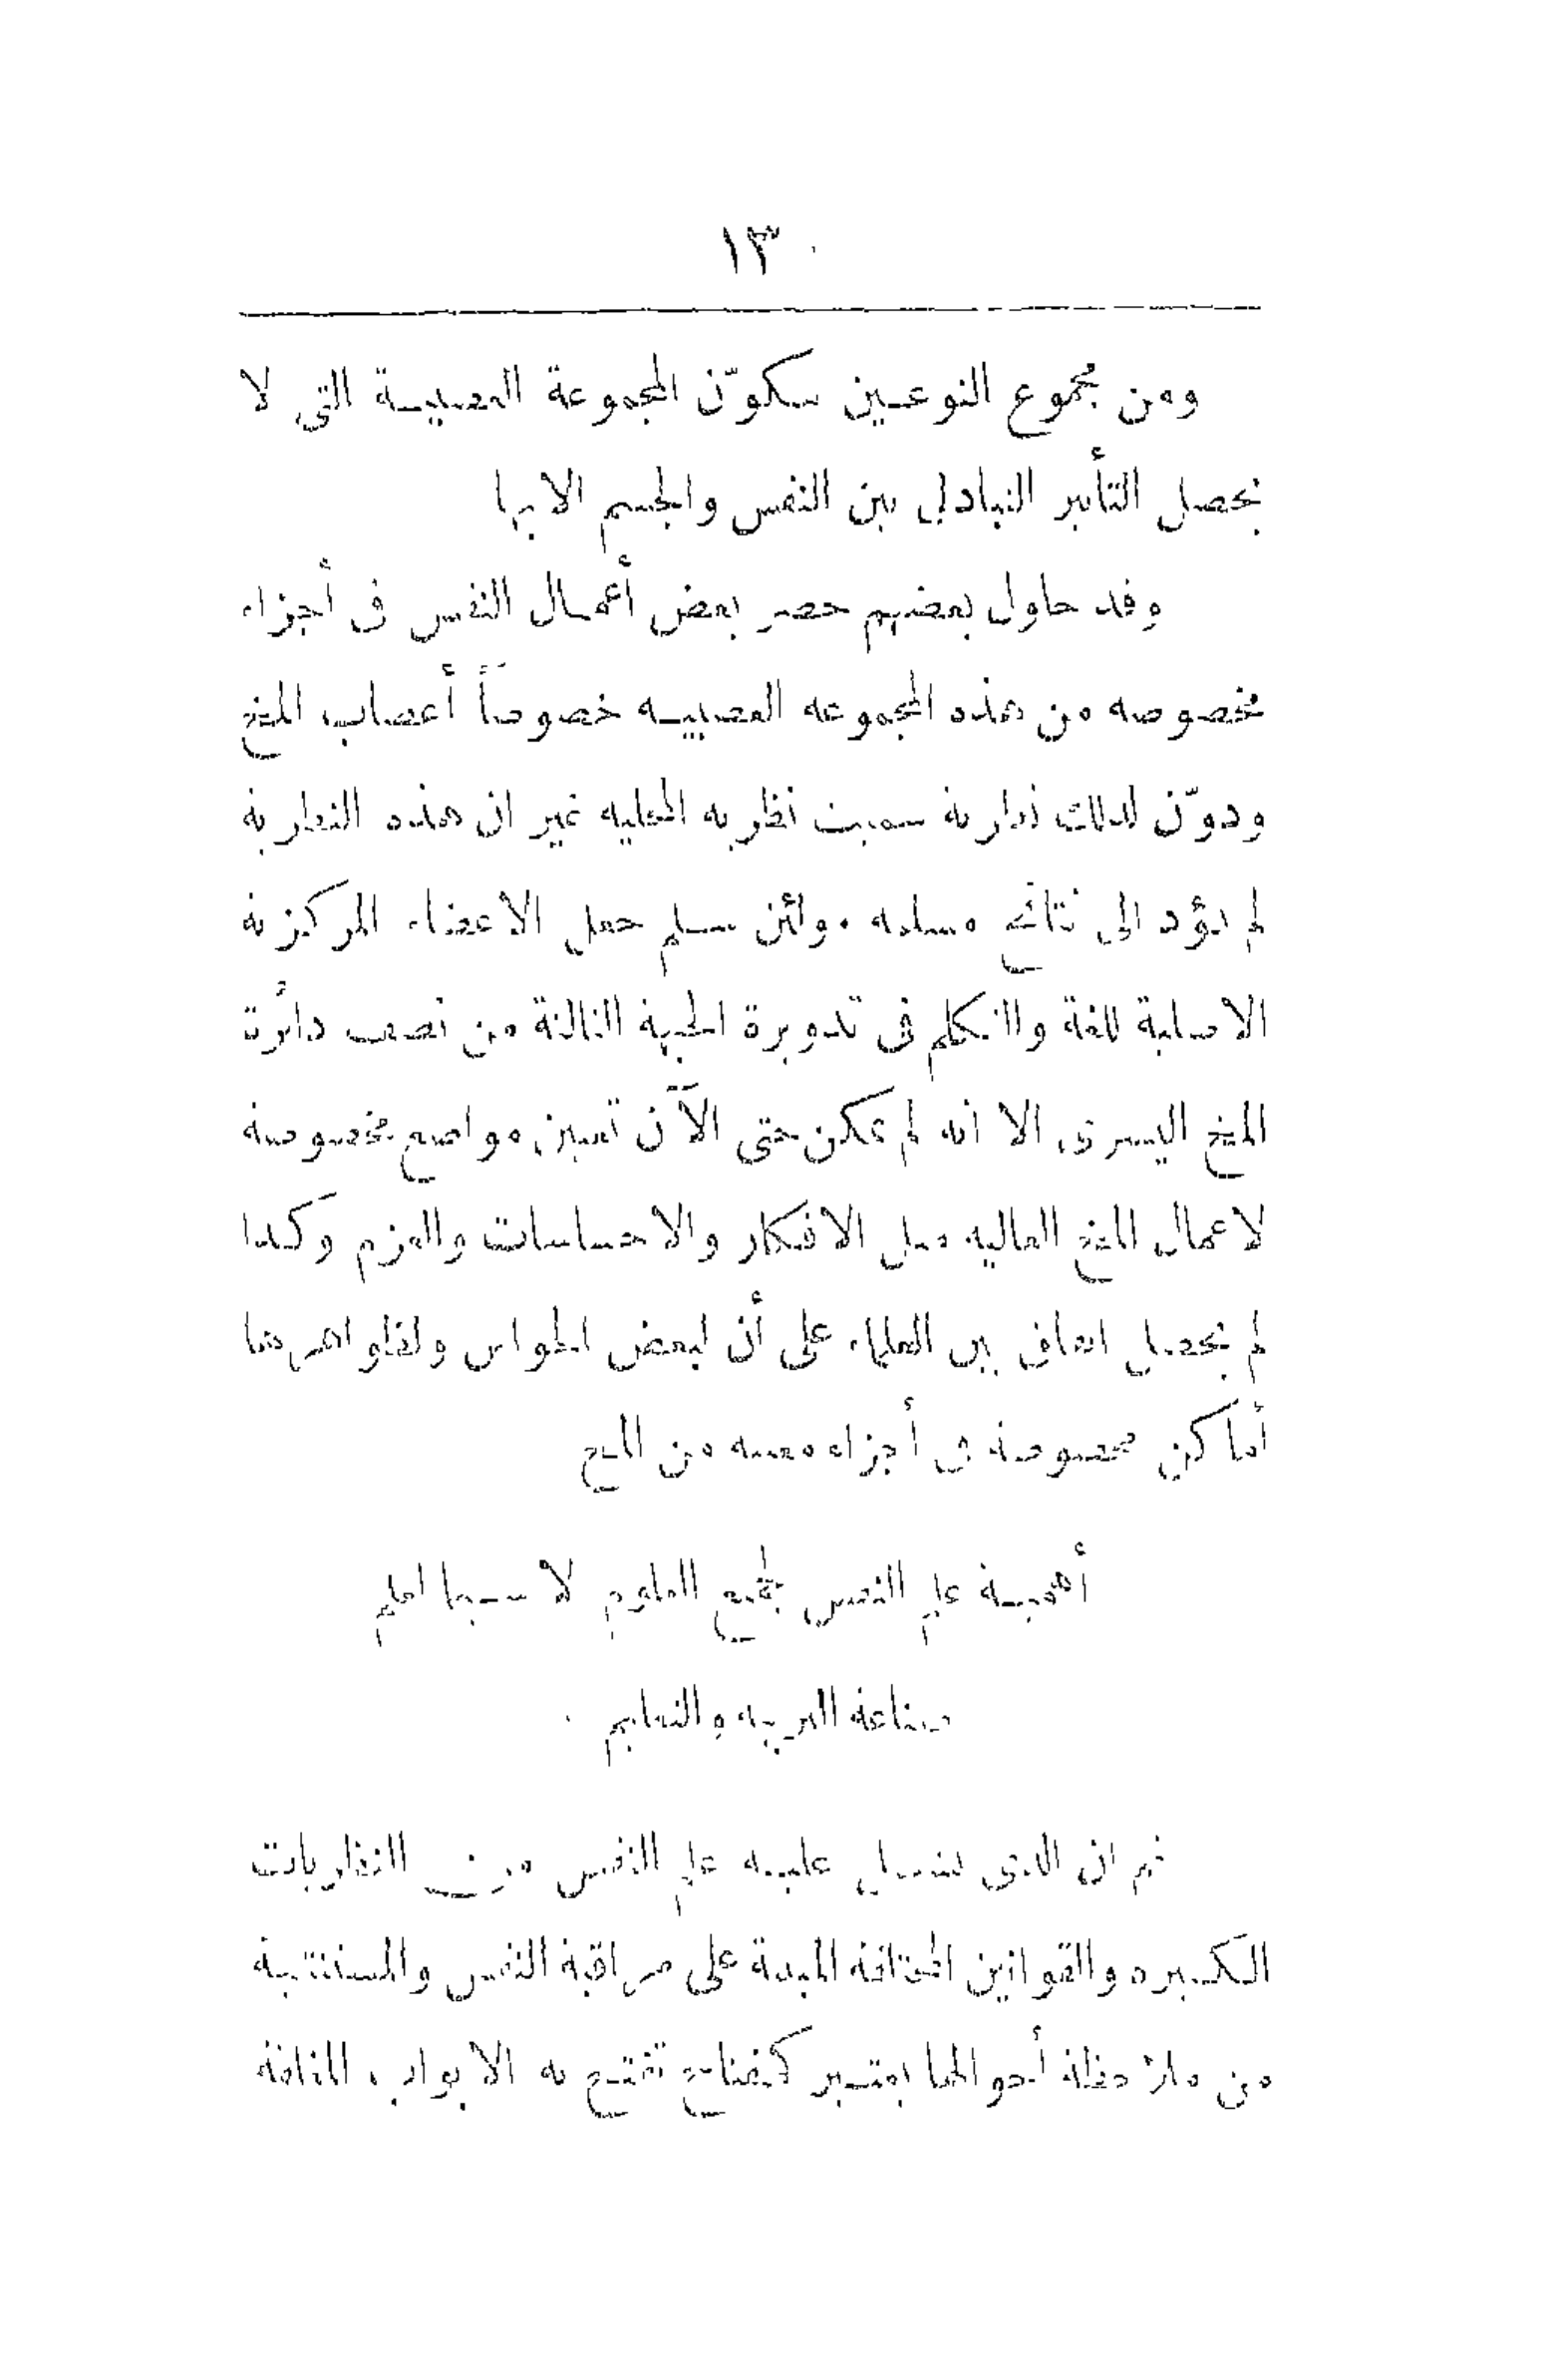 ١٣
ومن مجموع النوعين تتكوّن المجموعة العصبية التى لا
يحصل التأثير التبادلى بين النفس والجسم الا بها
وقد حاول بعضهم حصر بعض أعمال النفس فى أجزاء
مخصوصه من هذه المجموعه العصبيه خصوصاً أعصاب المخ
ودوّن لذلك نظرية سميت نظريه المحليه غير ان هذه النظرية
لم تؤد الى نتائج مسلمه . ولئن سلم جعل الاعضاء المركزية
الاصلية للغة والتكلم فى تدويرة الجبهة الثالثة من نصف دائرة
المخ اليسرى الا انه لم يمكن حتى الآن تعيين مواضع مخصوصة
لاعمال المخ العاليه مثل الافكار والاحساسات والعزم وكذا
لم يحصل اتفاق بين العلماء على أن لبعض الحواس ولظواهرها
أماكن مخصوصة فى أجزاء معينه من المخ
أهمية علم النفس لجميع العلوم لا سيما لعلم
صناعة التربيه والتعليم
ثم ان الذى يشتمل عليه علم النفس من النظريات
الكبيره والقوانين المختلفة المبنية على مراقبة النفس والمستنتجة
من ملاحظة أحوالها يعتبر كمفتاح تفتح به الابواب المغلقة